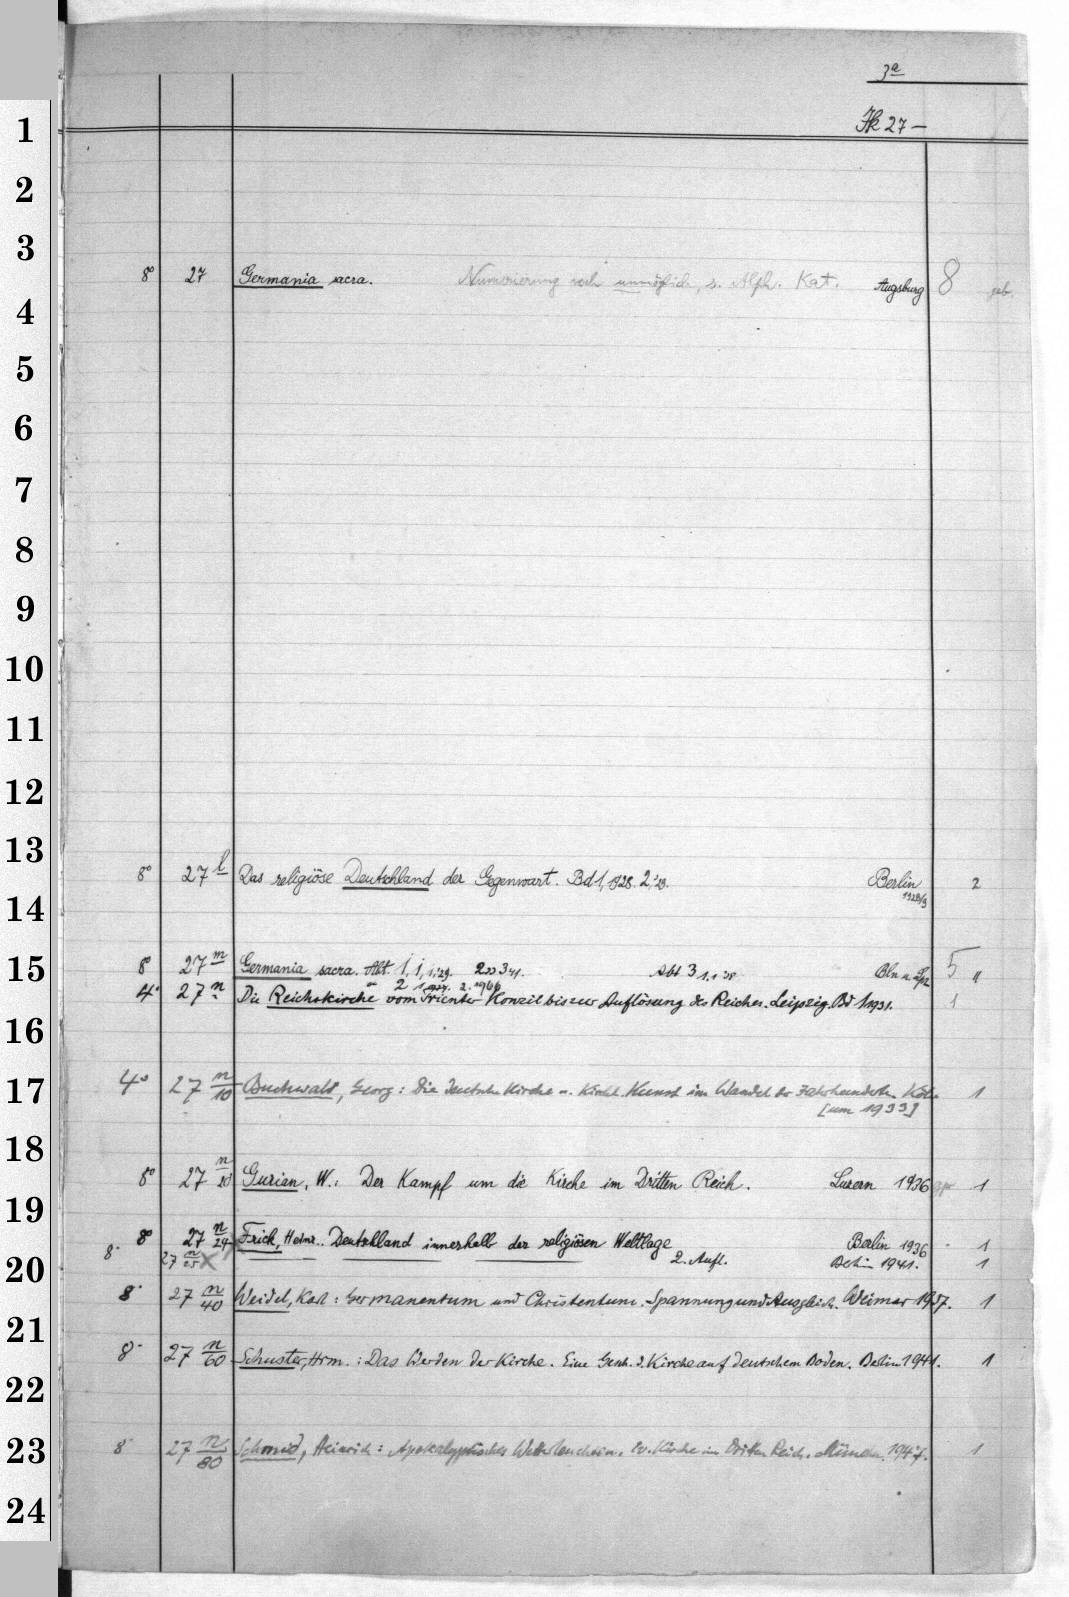 3a
Jk 27 –
1
2
3
8° 27 Germania sacra. Numerierung noch unmöglich, s. Alph. Kat. Augsburg 8 geb.
4
5
6
7
8
9
10
11
12
13
8° 27 l Das religiöse Deutschland der Gegenwart. Bd 1, 1928. 2,'29. Berlin 2
1928/9
14
15
8° 27 m Germania sacra. Abt. 1, 1, 1,'29. 3 41. Abt 3 1,1 '38 Bln u. Lpz 5 "
2 1, 2.
4° 27 n Die Reichskirche vom Trienter Konzil bis zur Auflösung des Reiches. Leipzig. Bd 1 1931. 1
16
17
4° 27 n/10 Buchwald, Georg: Die deutsche Kirche u. kirchl. Kunst im Wandel der Jahrhunderte. 1
[um 1933]
18
8° 27 n/20 Gurian, W.: Der Kampf um die Kirche im Dritten Reich. Luzern 1936 1
19
8° 27 n/24 Frick, Heinr.. Deutschland innerhalb der religiösen Weltlage Berlin 1936 1
8° 27 n/25 x 2. Aufl. Berlin 1941. 1
20
8° 27 n/40 Weidel, Karl: Germanentum und Christentum. Spannung und Ausgleich. Weimar 1937. 1
21
8° 27 n/60 Schuster, Hrm.: Das Werden der Kirche. Eine Gesch. d. Kirche auf deutschem Boden. Berlin 1941. 1
22
23
8° 27 n/80 Schmid, Heinrich: Apokalyptisches Wetterleuchten. Ev. Kirche im Dritten Reich. München. 1947. 1
24